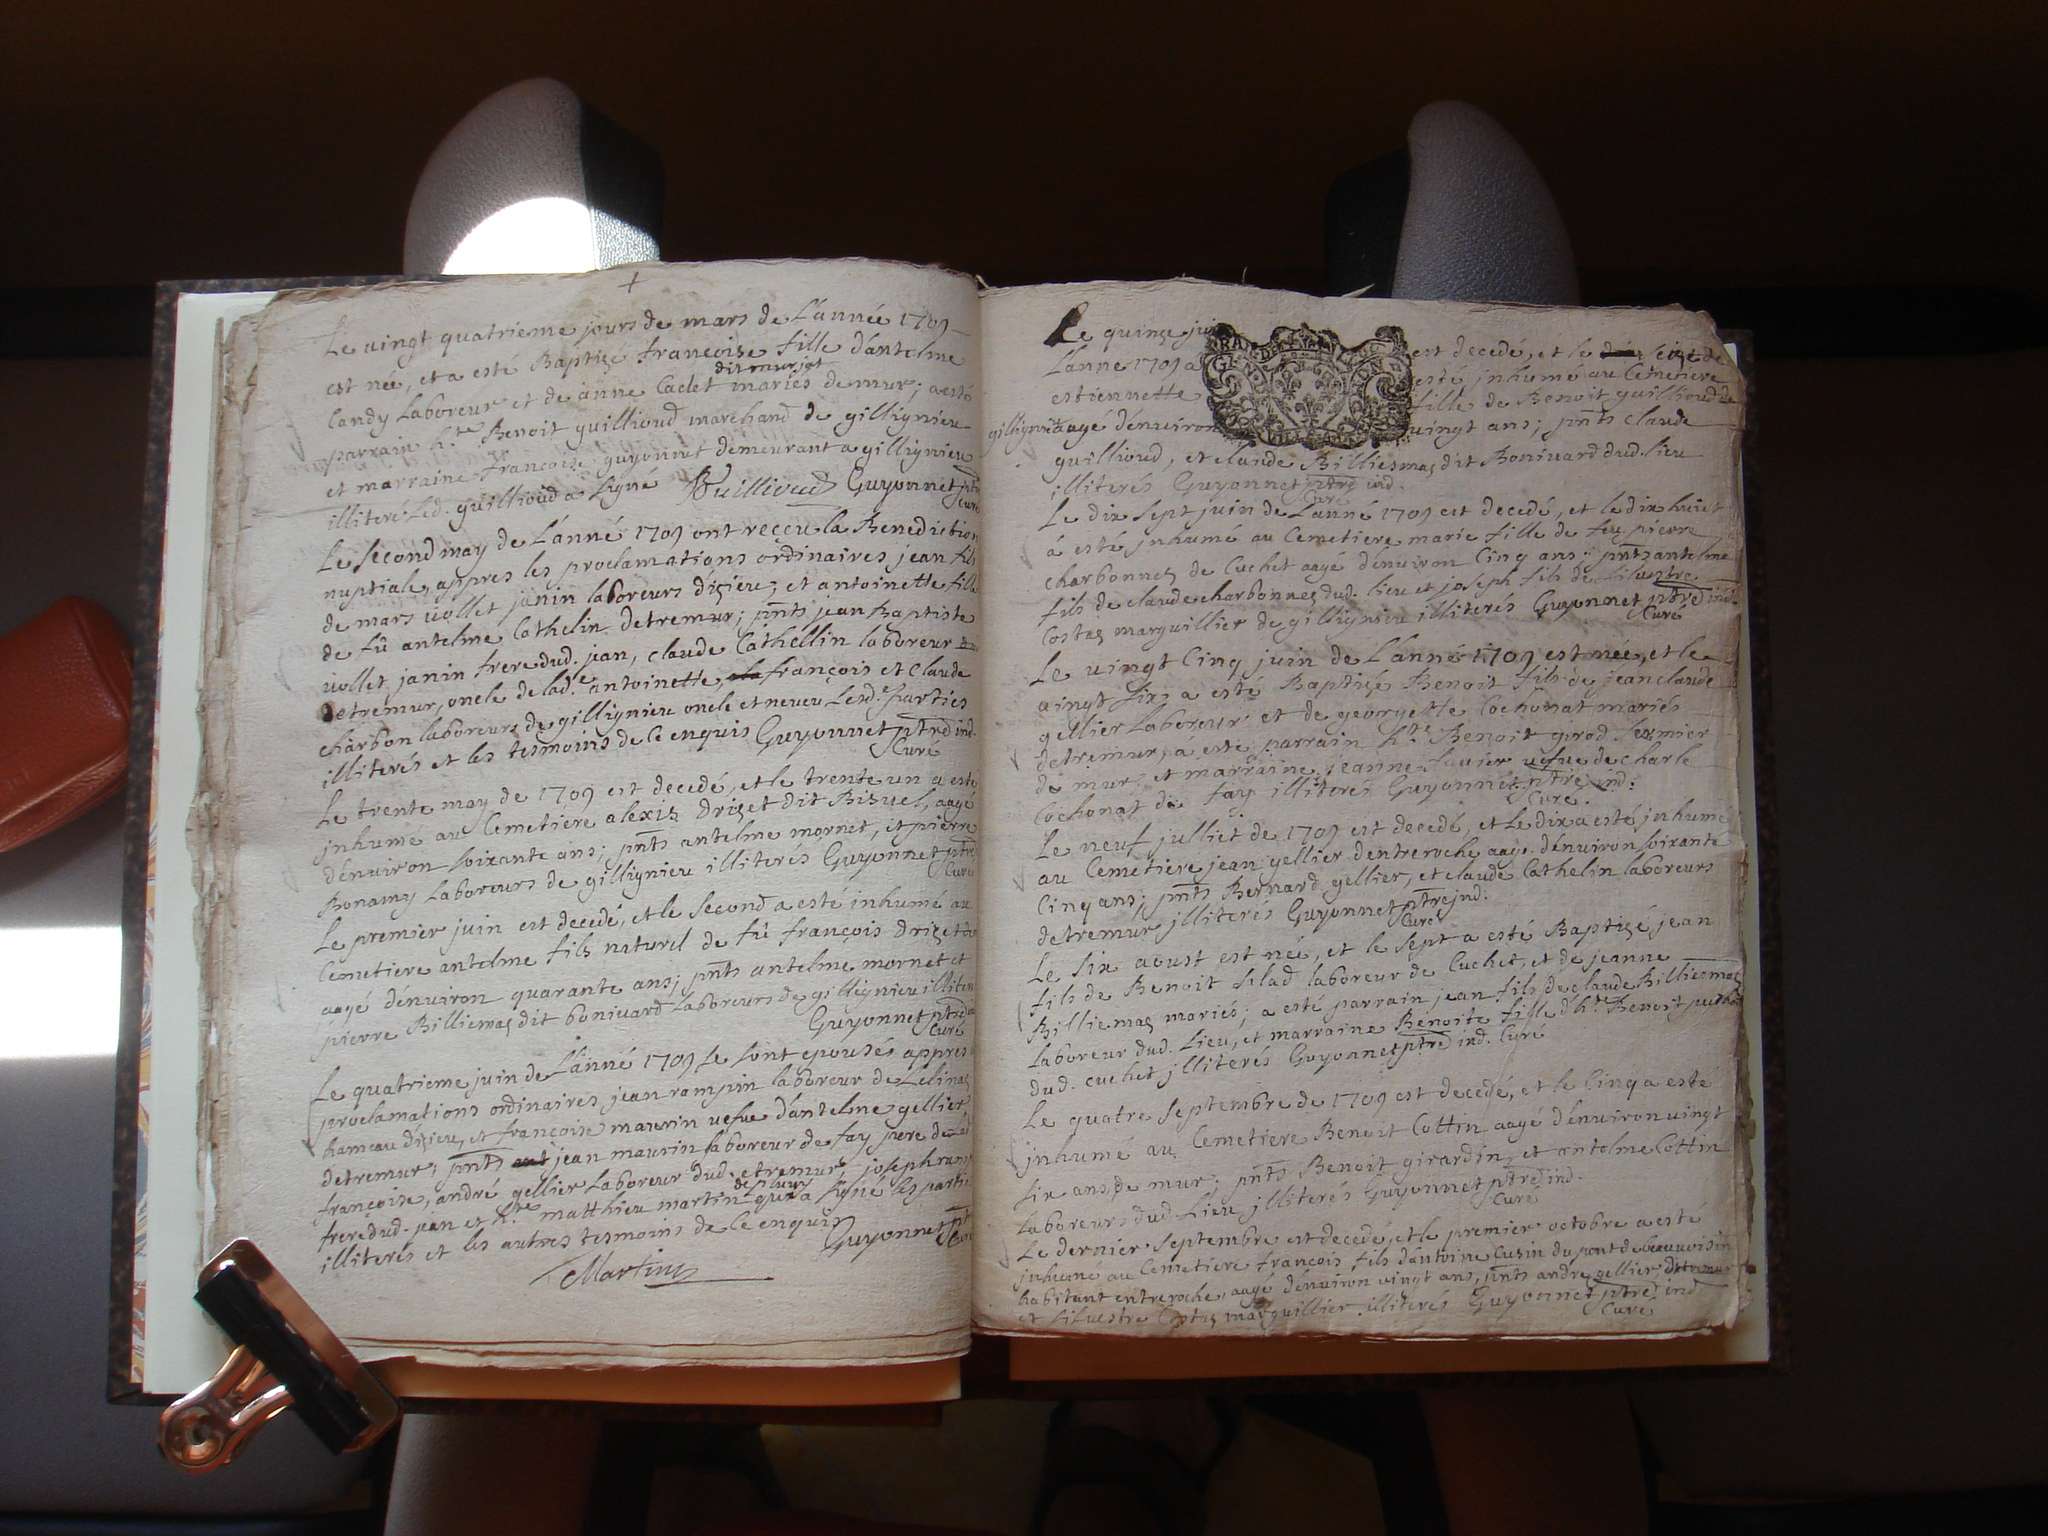 +
Le vingt quatrieme jours de mars de L'année 1709
est née, et a esté Baptizé françoise fille d'antelme
dit murjot
Candy Laboreur et de anne Caclet mariés de mur; a esté
parrain h.te Benoit guillioud marchand de gillignieu
et marraine françoise guyonnet demeurant a gillignieu
illiteré Led. guillioud a signé Guillioud Guyonnet ptre
Curé
Le second may de L'anné 1709 ont reçeu la Benediction
nuptiale, appres les proclamations ordinaires jean fils
de mars vollet janin laboreurs d'izieu; et antoinette fille
de fû antelme Cathelin detremur; pnts jean Baptiste
vollet janin frere dud. jean, claude Cathellin laboreur
detremur, oncle de lad.e antoinette, françois et claude
charbon laboreurs de gillignieu oncle et neveu Lesd.e parties
illiterés et les tesmoins de ce enquis Guyonnet ptre ind.
Curé
Le trente may de 1709 est decedé, et le trente un a esté
jnhumé au Cemetiere alexis Drizet dit Bizuel, aagé
d'énviron soixante ans; pnts antelme mornet, et pierre
Bonamy Laboreurs de gillignieu illiterés Guyonnet ptre
Curé
Le premier juin est decedé, et le second a esté inhumé au
Cemetiere antelme fils naturel de fû françois Drizet
aagé d'énviron quarante ans; pnts antelme mornet et
pierre Billiemaz dit bonivard Laboreurs de gillignieu illiterés
Guyonnet ptre
Curé
Le quatrieme juin de L'anné 1709 se sont epousés appres
proclamations ordinaires, jean rampin laboreur de Lelinaz
hameau d'izieu, et françoise maurin vefue d'antelme gellier
detremur; pnts jean maurin laboreur de fay pere de lad.
françoise, andré gellier Laboreur dud. etremur, joseph
frere dud. jean et h.te matthieu martin qui a signé les
illiterés et les autres tesmoins de ce enquis Guyonnet
Curé
Martin
Le quinze
L'anne 1709 a est decedé, et le seize de
estiennette esté jnhumé au Cemetiere
fille de Benoit guillioud de
gillignieu aagé d'énviron vingt ans; pnts claude
guillioud, et claude Billiemaz dit Bonivard dud. lieu
illiterés Guyonnet ptre ind.
Curé
Le dix sept juin de L'anné 1709 est decedé, et le dix huict
á esté jnhumé au Cemetiere marie fille de feu pierre
charbonnez de Cuchet aagé d'énviron Cinq ans; pnts antelme
fils de claude charbonnez dud. lieu et joseph fils de silvestre
Costaz marguillier de gillignieu illiterés Guyonnet ptre ind.
Curé
Le vingt Cinq juin de L'anné 1709 est née, et le
vingt six a esté Baptizé Benoit fils de jean claude
gellier Laboreur et de georgette Cochonat mariés
detremur, a esté parrain h.te Benoit girod fermier
de mur; et marraine jeanne vefue de charle
Cochonat de fay illiterés Guyonnet ptre ind.
Curé.
Le neuf julliet de 1709 est decedé, et Le dix a esté jnhumé
au Cemetiere jean gellier d'entreroche aagé d'énviron soixante
Cinq ans; pnts Bernard gellier, et claude Cathelin laboreurs
detremur jlliterés Guyonnet ptre jnd.
Curé
Le six aoust est née, et le sept a esté Baptizé jean
fils de Benoit silad laboreur de Cuchet, et de jeanne
Billiemaz mariés; a esté parrain jean fils de claude Billiemaz
laboreur dud. Lieu, et marraine Benoite fille d'h.te Benoit
dud. cuchet jlliterés Guyonnet ptre ind. Curé
Le quatre septembre de 1709 est decedé, et le Cinq a esté
jnhumé au Cemetiere Benoit Cottin aagé d'énviron vingt
six ans, de mur; pnts Benoit girardin, et antelme Cottin
laboreurs dud. Lieu jlliterés Guyonnet ptre ind.
Curé
Le dernier septembre est decedé, et le premier octobre a esté
jnhumé au Cemetiere françois fils d'antoine Cusin du pont de beauvoisin
habitant entreroche, aagé d'énviron vingt ans, pnts andré gellier detremur
et silvestre Costaz marguillier illiterés Guyonnet ptre ind
Curé